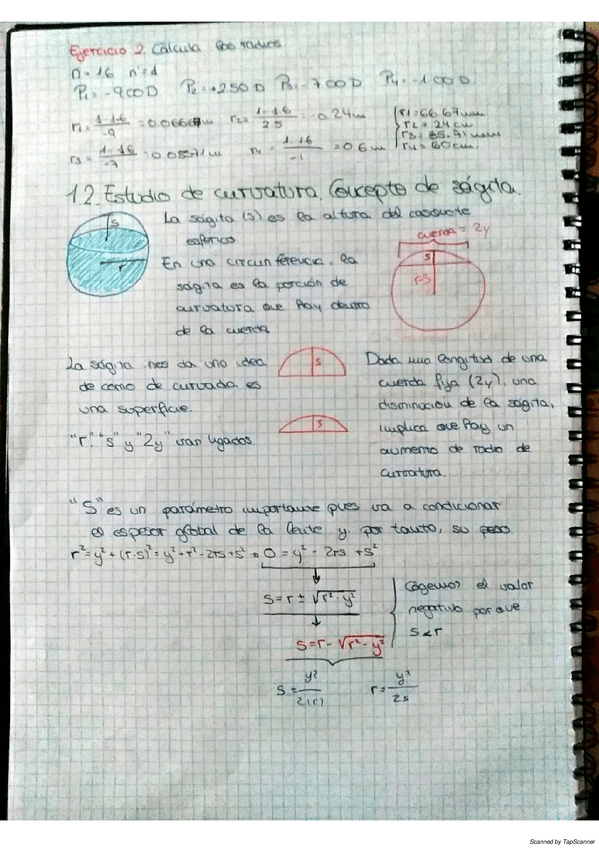 Ejercicio 2. Calcula los radios
n = 1.6 n' = 1
P₁ = -9.00 D P₂ = +2.50 D P₃ = -7.00 D P₄ = -1.00 D
r₁ = (1-1.6)/-9 = 0.06667 m r₂ = (1-1.6)/2.5 = -0.24 m
r₃ = (1-1.6)/-7 = 0.08571 m r₄ = (1-1.6)/-1 = 0.6 m
r1 = 66.67 mm
r2 = 24 cm
r3 = 85.71 mm
r4 = 60 cm.
1.2. Estudio de curvatura. Concepto de ságita.
s
r
La ságita (s) es la altura del casquete
esférico.
En una circunferencia, la
ságita es la porción de
curvatura que hay dentro
de la cuerda
cuerda = 2y
s
r-s
La ságita nos da una idea
de como de curvada es
una superficie.
"r", "s" y "2y" van ligados.
s
s
Dada una longitud de una
cuerda fija (2y), una
disminución de la ságita,
implica que hay un
aumento de radio de
curvatura.
"S" es un parámetro importante pues va a condicionar
el espesor global de la lente y, por tanto, su peso.
r² = y² + (r-s)² = y² + r² - 2rs + s² → 0 = y² - 2rs + s²
s = r ± √(r² - y²)
s = r - √(r² - y²)
Cogemos el valor
negativo porque
s < r
s = y²/2(r) r = y²/2s
Scanned by TapScanner